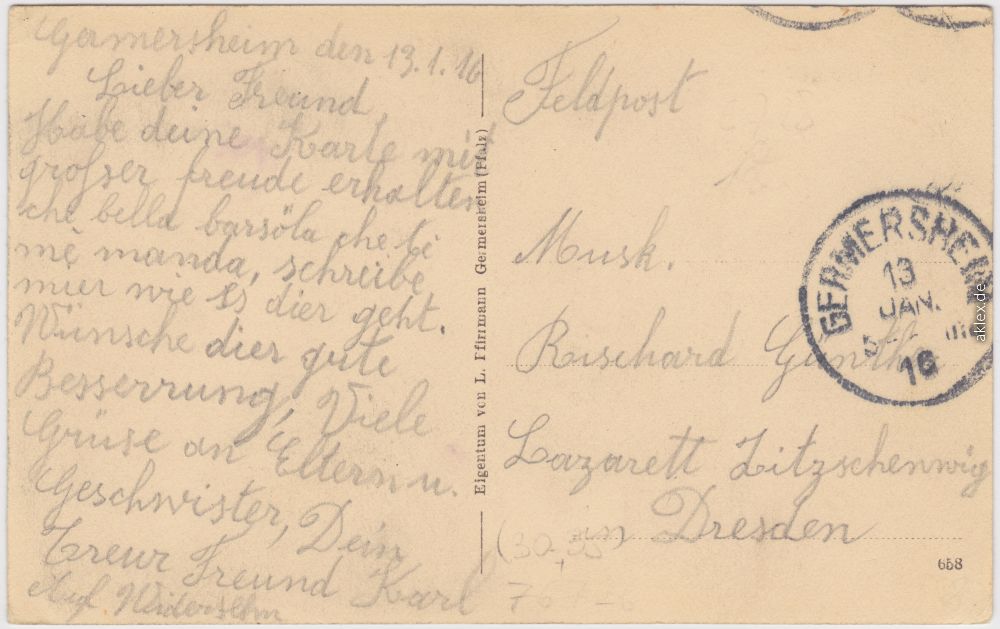 Germersheim den 13.1.16
Lieber Freund
Habe deine Karte mit
grofser freude erhalten
che bella barsöla che te
me manda, schreibe
mier wie es dier geht.
Wünsche dier gute
Besserrung, Viele
Grüse an Eltern u.
Geschwister, Dein
Treur Freund Karl
Auf Widersehn
Eigentum von L. Pfirrmann Germersheim (Pfalz)
Feldpost
Musk.
Rischard Günther
Lazarett Litzschenwig
in Dresden
GERMERSHEIM
13
JAN.
16
658
aklex.de